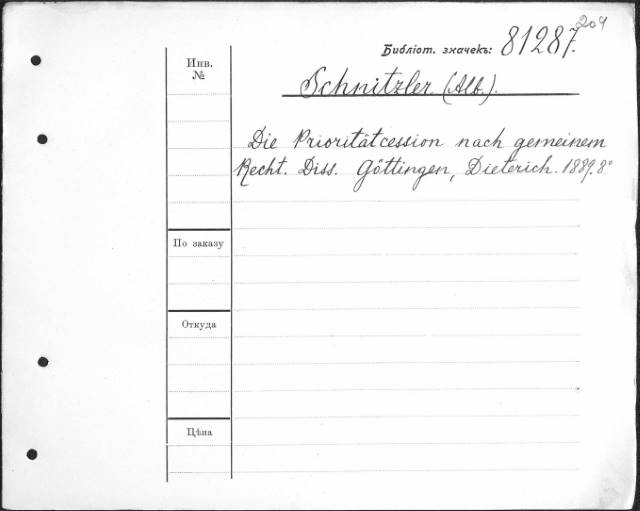 204
Библіот. значекъ: 81287.
Инв.
№
Schnitzler (Alb.).
Die Prioritätcession nach gemeinem
Recht. Diss. Göttingen, Dieterich. 1889. 8°
По заказу
Откуда
Цѣна